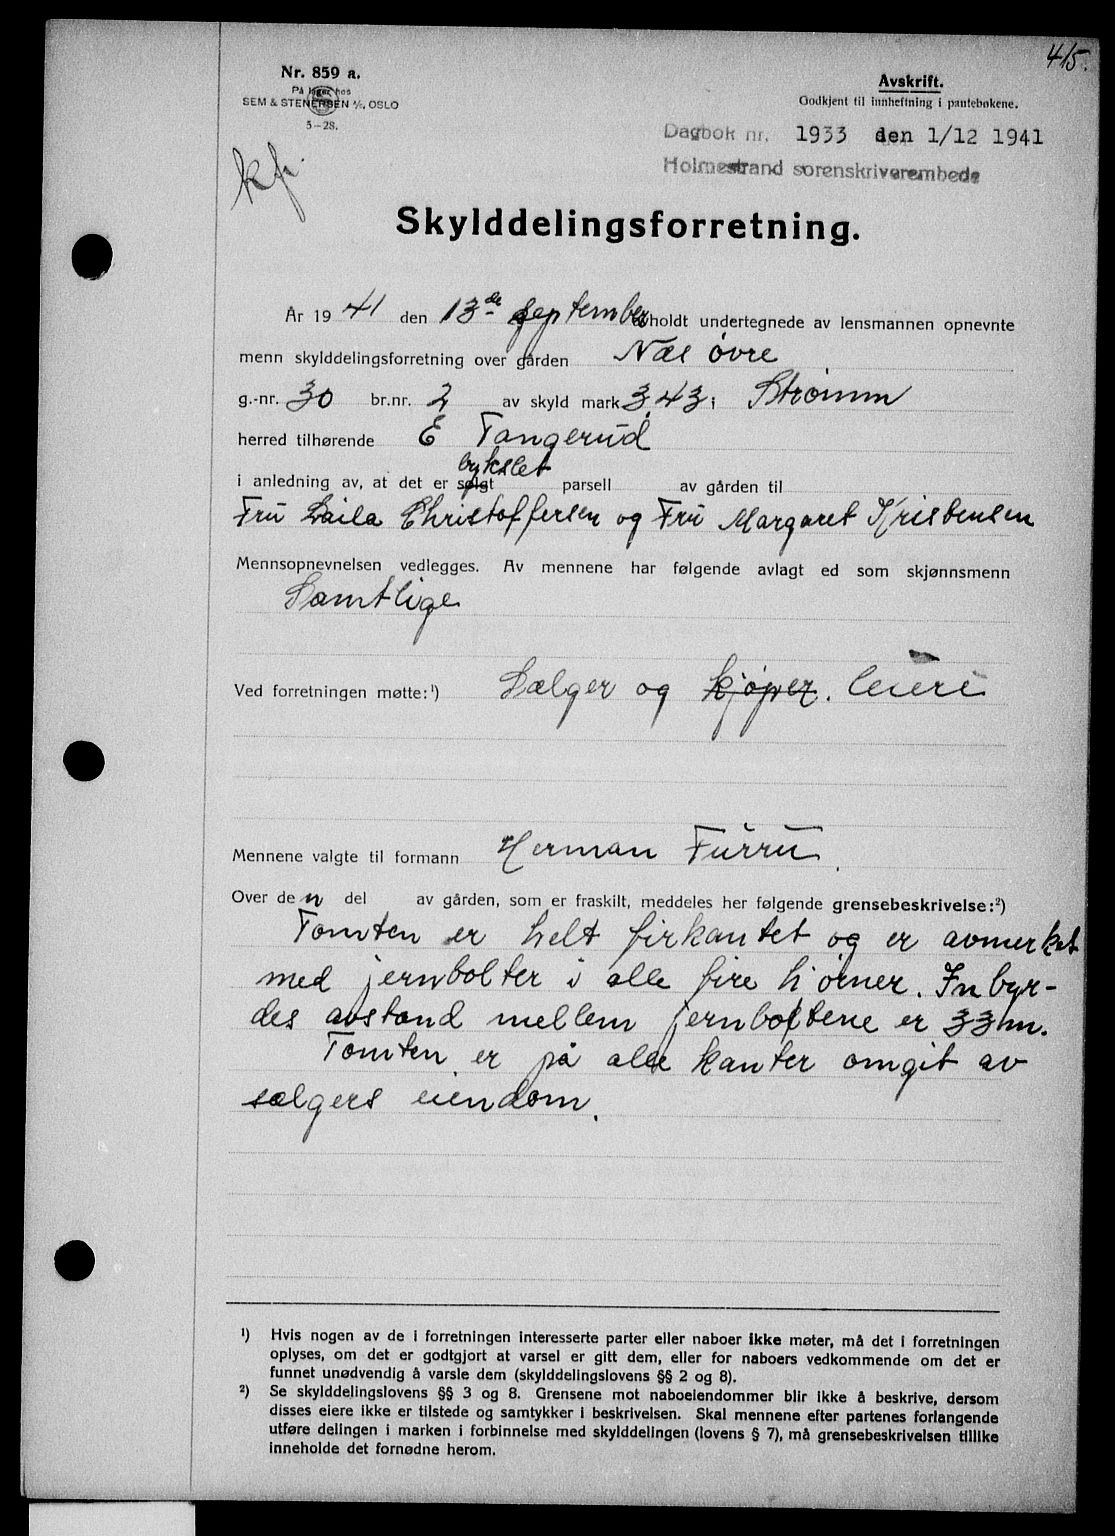 415.
Nr. 859 a.
På lager hos
SEM & STENERSEN A/S, OSLO
5-28.
Avskrift.
Godkjent til innheftning i pantebøkene.
Dagbok nr. 1933 den 1/12 1941
Holmestrand sorenskriverembede
Skylddelingsforretning.
År 1941 den 13de september avholdt undertegnede av lensmannen opnevnte
menn skylddelingsforretning over gården Næs øvre
g.-nr. 30 br.nr. 2 av skyld mark 3,43 i Strømm
herred tilhørende E Tangerud
bykslet
i anledning av, at det er solgt parsell av gården til
Fru Laila Christoffersen og Fru Margaret Kristensen
Mennsopnevnelsen vedlegges. Av mennene har følgende avlagt ed som skjønnsmenn
Samtlige
Ved forretningen møtte:¹) Sælger og kjøper. leiere
Mennene valgte til formann Herman Furru.
Over den del av gården, som er fraskilt, meddeles her følgende grensebeskrivelse:²)
Tomten er helt firkantet og er avmerket
med jernbolter i alle fire hjørner. Inbyr-
des avstand mellem jernboltene er 33 m.
Tomten er på alle kanter omgit av
sælgers eiendom.
¹) Hvis nogen av de i forretningen interesserte parter eller naboer ikke møter, må det i forretningen
oplyses, om det er godtgjort at varsel er gitt dem, eller for naboers vedkommende om det er
funnet unødvendig å varsle dem (skylddelingslovens §§ 2 og 8).
²) Se skylddelingslovens §§ 3 og 8. Grensene mot naboeiendommer blir ikke å beskrive, dersom
disses eiere ikke er tilstede og samtykker i beskrivelsen. Skal mennene efter partenes forlangende
utføre delingen i marken i forbinnelse med skylddelingen (lovens § 7), må grensebeskrivelsen tillike
inneholde det fornødne herom.